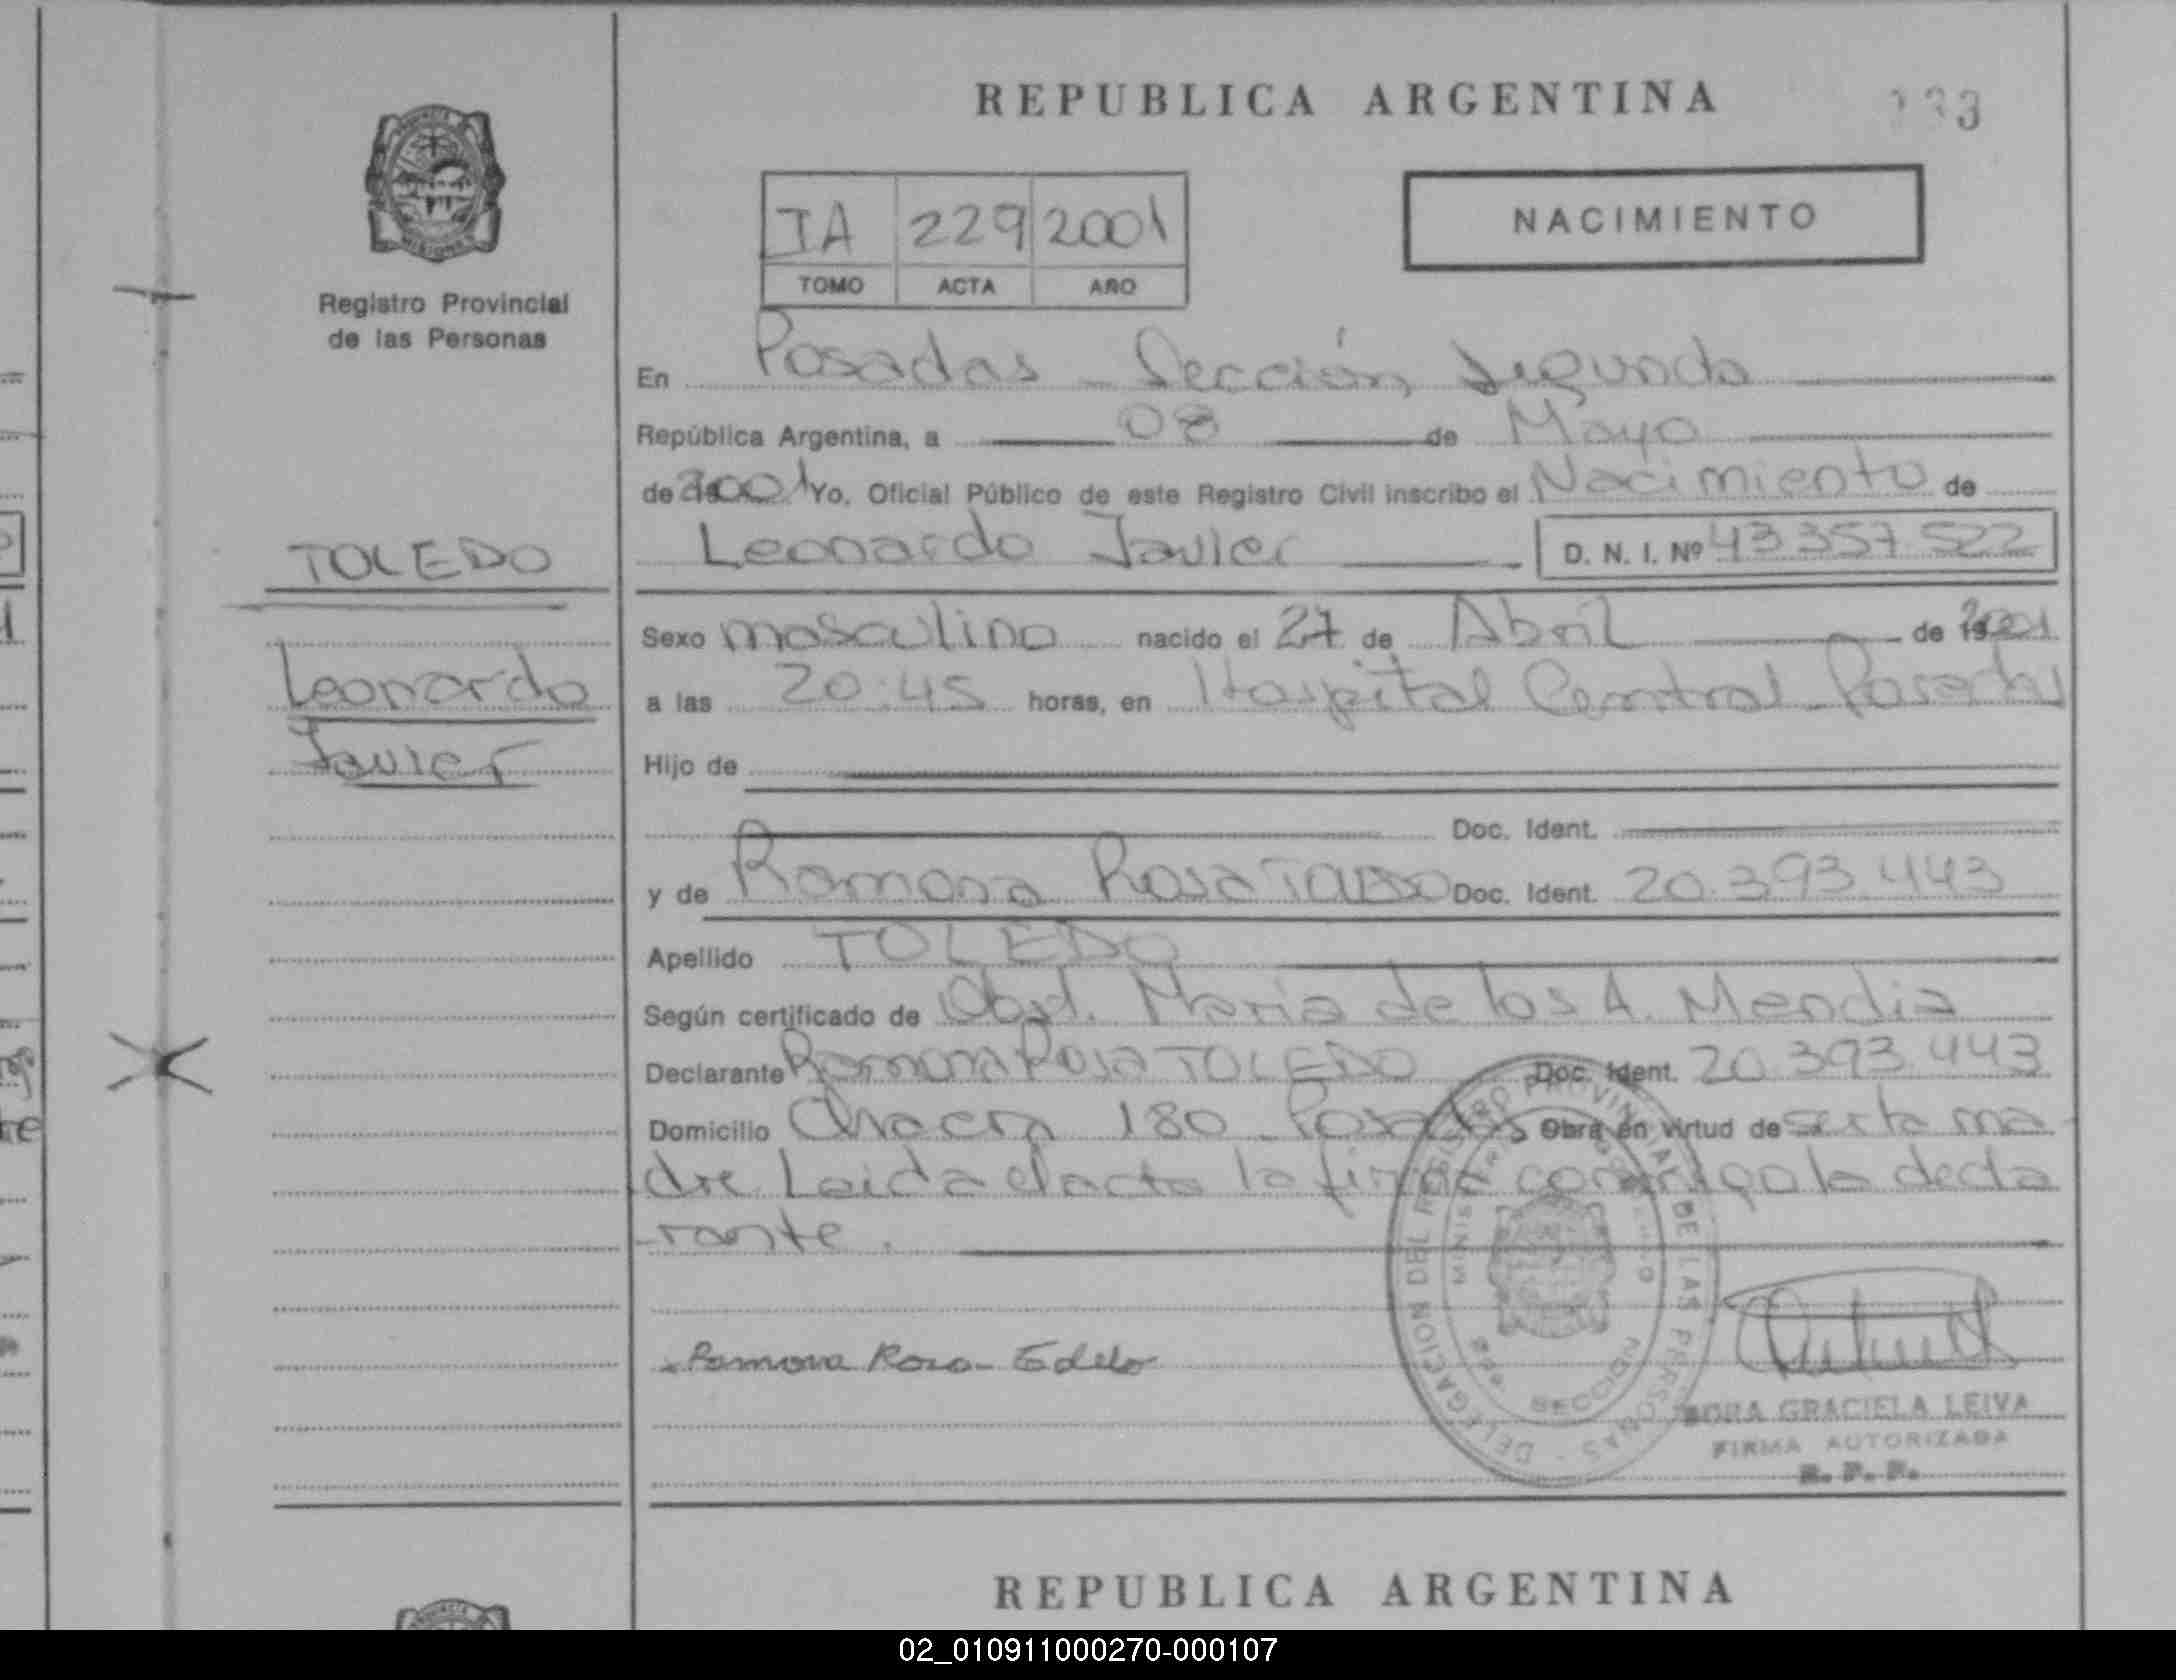 REPUBLICA ARGENTINA
133
NACIMIENTO
IA 229 2001
TOMO ACTA AÑO
Registro Provincial
de las Personas
En Posadas Sección Segunda
República Argentina, a 08 de Mayo
de 2001 Yo, Oficial Público de este Registro Civil inscribo el Nacimiento de
Leonardo Javier D. N. I. Nº 43357522
TOLEDO
Leonardo
Javier
Sexo masculino nacido el 27 de Abril de 2001
a las 20:45 horas, en Hospital Central Posadas
Hijo de
Doc. Ident.
y de Ramona Rosa Doc. Ident. 20.393.443
Apellido TOLEDO
Según certificado de Obst. Maria de los A. Mendia
Declarante Ramona Rosa TOLEDO Doc. Ident. 20.393.443
Domicilio Chacra 180 Posadas Obra en virtud de ser la ma
dre Leida el acta la firma conmigo la decla
rante.
Ramona Rosa
DELEGACION DEL REGISTRO PROVINCIAL DE LAS PERSONAS
SECCION
GRACIELA LEIVA
FIRMA AUTORIZADA
R. P. P.
REPUBLICA ARGENTINA
02_010911000270-000107